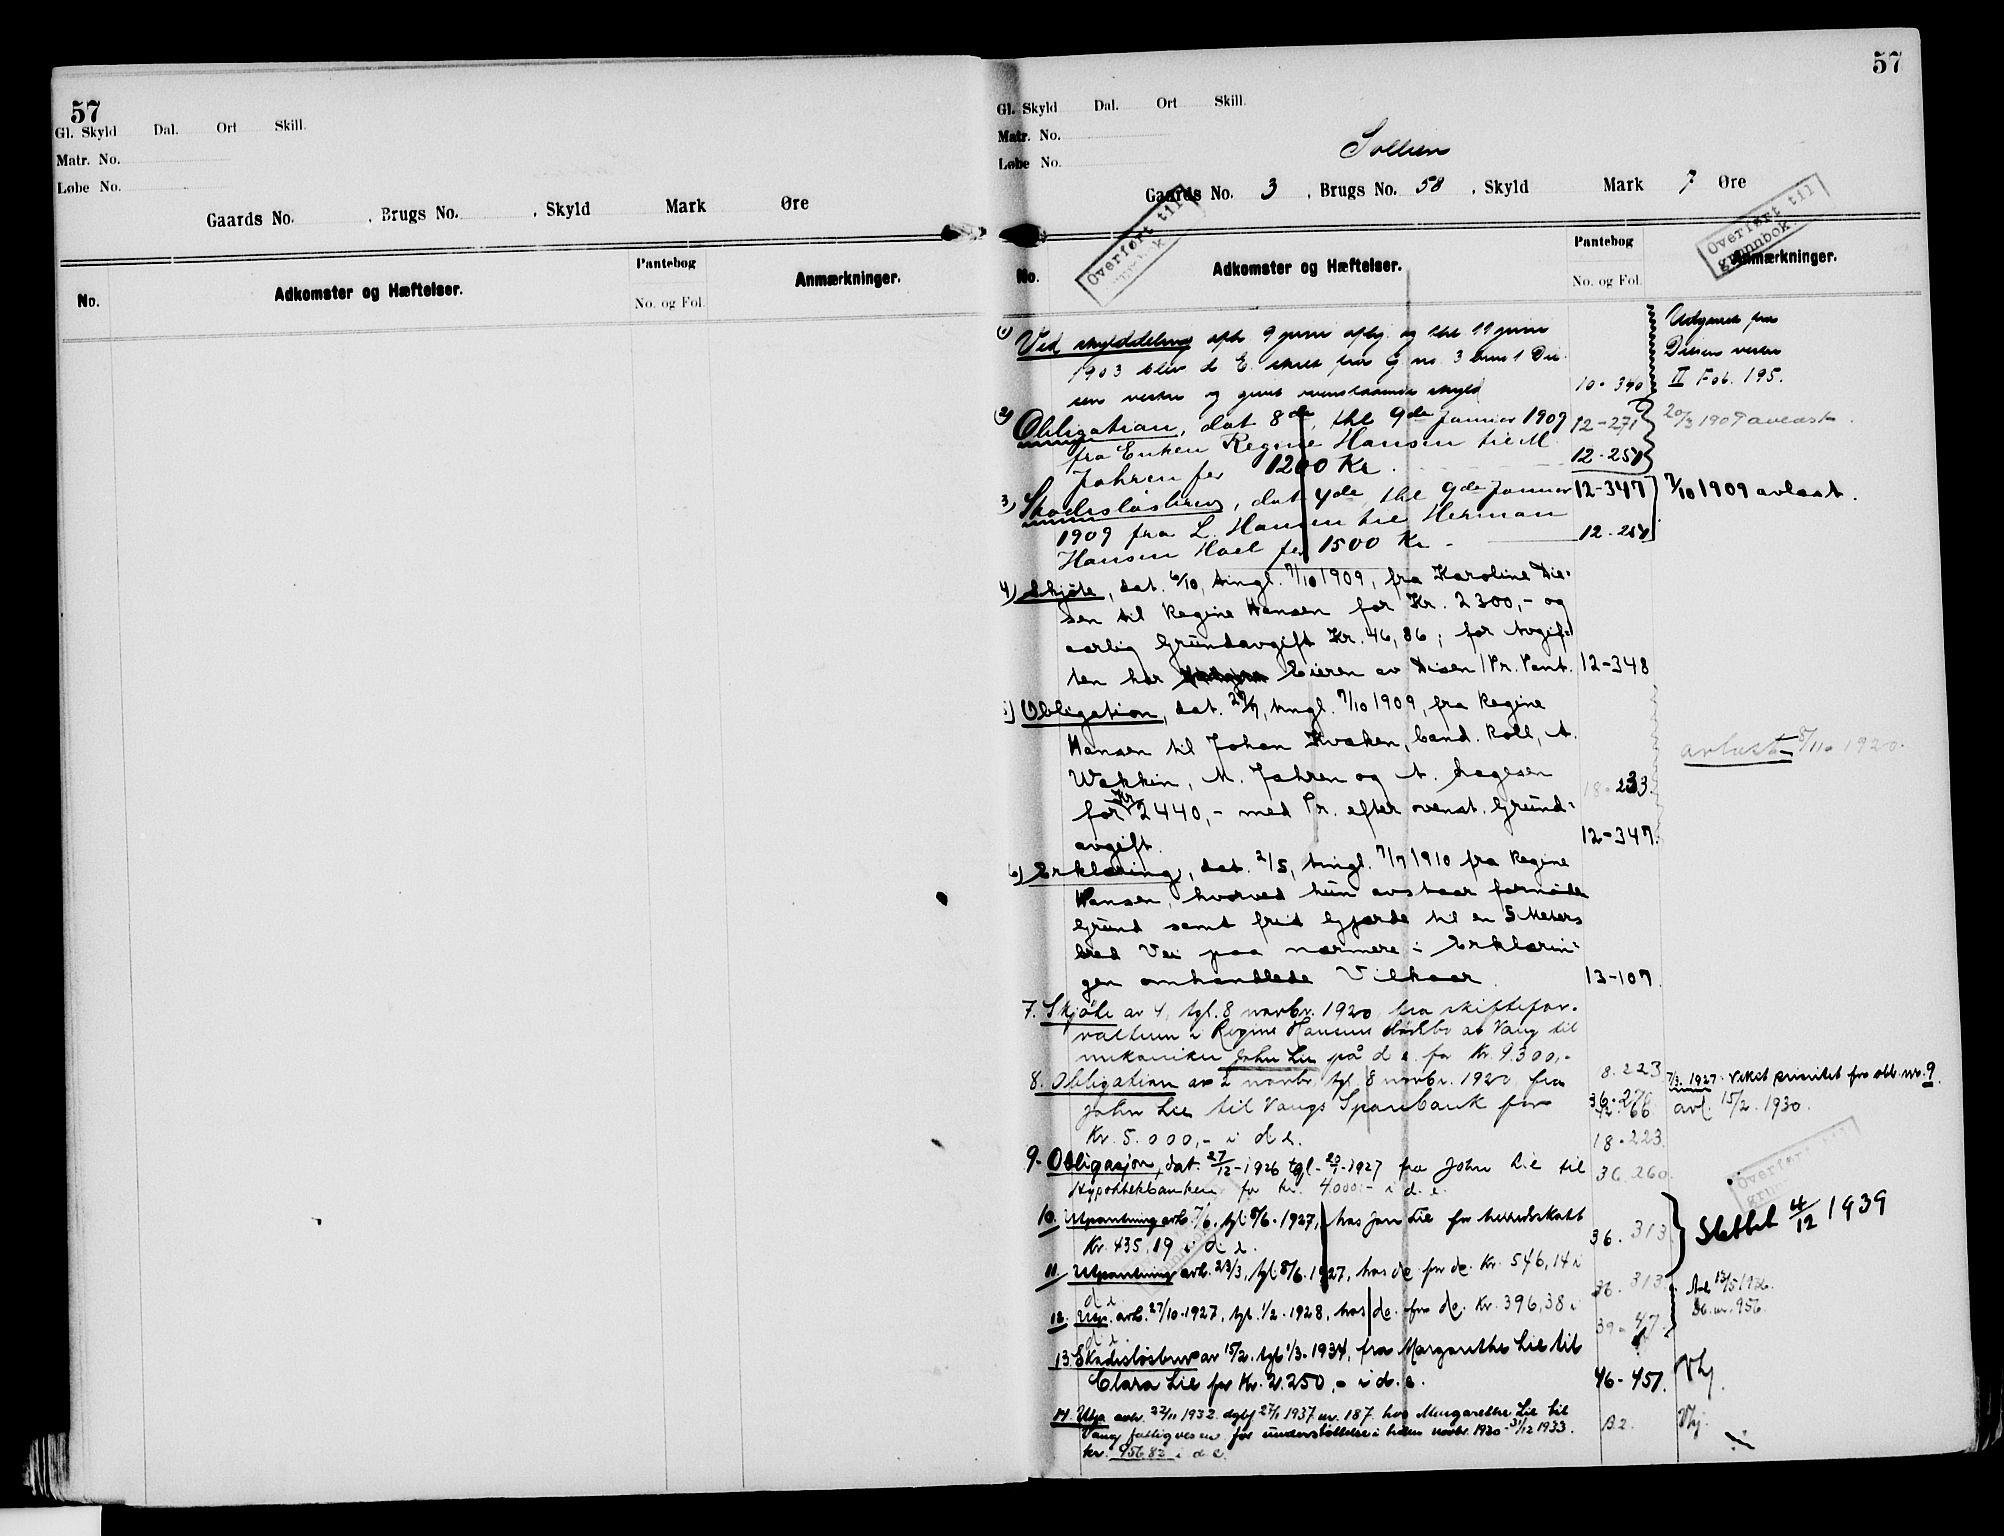 57
Gl. Skyld Dal. Ort Skill.
Matr. No.
Løbe No.
Gaards No. , Brugs No. , Skyld Mark Øre
No.
Adkomster og Hæftelser.
Pantebog
No. og Fol.
Anmærkninger.
57
Gl. Skyld Dal. Ort Skill.
Matr. No.
Løbe No.
Gaards No. 3 , Brugs No. 58 , Skyld Mark 7 Øre
Overført til
Overført til
grunnbok
No.
Adkomster og Hæftelser.
Pantebog
No. og Fol.
Anmærkninger.
1) Ved skylddeling afh 9 juni afhj. og thl 11 juni
1903 blev d. E. skilt fra G no. 3 bno 1 Di-
sen vestre og givet ovenstaaende skyld 10-340
Udgaaet fra
Disen vestre
II Fol. 195.
2) Obligation, dat 8de, thl 9de Januar 1909 12-271
fra Enken Regine Hansen til M.
Jahren for 1200 Kr. 12-251
20/3 1909 avlæst.
3) Skadesløsbrev, dat 4de thl 9de Januar 12-347
1909 fra L. Hansen til Herman
Hansen Hoel for 1500 Kr - 12-251
7/10 1909 avlæst.
4) Skjøte, dat. 6/10, tingl. 7/10 1909, fra Karoline Di-
sen til Regine Hansen for Kr. 2300,- og
aarlig Grundavgift Kr. 46,86; for Avgif-
ten har Eieren av Disen 1 Pr. Pant. 12-348
5) Obligation, dat. 29/9, tingl. 7/10 1909, fra Regine
Hansen til Johan Kvaken, Cand. Roll, A.
Wakkin, M. Jahren og A. Hagesen
for Kr 2440,- med Pr. efter ovenst. Grund-
avgift.
18-233.
12-347.
avlæst 8/11 1920.
6) Erklæring, dat. 2/5, tingl. 7/7 1910 fra Regine
Hansen, hvorved hun avstaar fornøden
Grund samt frit Gjærde til en 5 Meters
bred Vei paa nærmere i Erklærin-
gen omhandlede Vilkaar. 13-107.
7. Skjøte av 4, tgl. 8 novbr. 1920 fra skiftefor-
valteren i Regine Hansens dødsbo av Vang til
mekaniker John Lie på d. e. for Kr. 9300,- 8.223
8. Obligation av 2 novbr. tgl. 8 novbr. 1920 fra
John Lie til Vangs Sparebank for
Kr. 5.000,- i d.e.
18-223.
7/3 1927. Veket prioritet for obl. nr. 9.
avl. 15/2. 1930.
9. Obligasjon, dat. 27/12-1926 tgl. 20/1-1927 fra John Lie til 36.260.
Hypotekbanken for kr. 4000.- i d. e.
10. Utpantning avh. 7/6. tgl. 8/6-1927, hos John Lie for herredskatt
Kr. 435,19 i d. e. 36.313
Slettet 4/12 1939
11. Utpantning avh. 23/3, tgl. 8/6.1927, hos de. for de. Kr. 546,14 i
d. e. 36.313.
12. Utp. avh. 27/10-1927, tgl. 1/2-1928, hos de. for de. Kr. 396,38 i
d. e. 39-47.
13. Skadesløsbrev av 15/2. tgl. 1/3-1934, fra Margarethe Lie til
Clara Lie for Kr. 2.250,- i d. e. 46-451.
14. Utp. avh. 22/11 1932. dgbf. 27/1 1937. nr. 187. hos Margarethe Lie til
Vang fattigvesen for understøttelse i tiden novbr. 1930-31/12 1933.
kr. 956,82 i d. e.
B2.